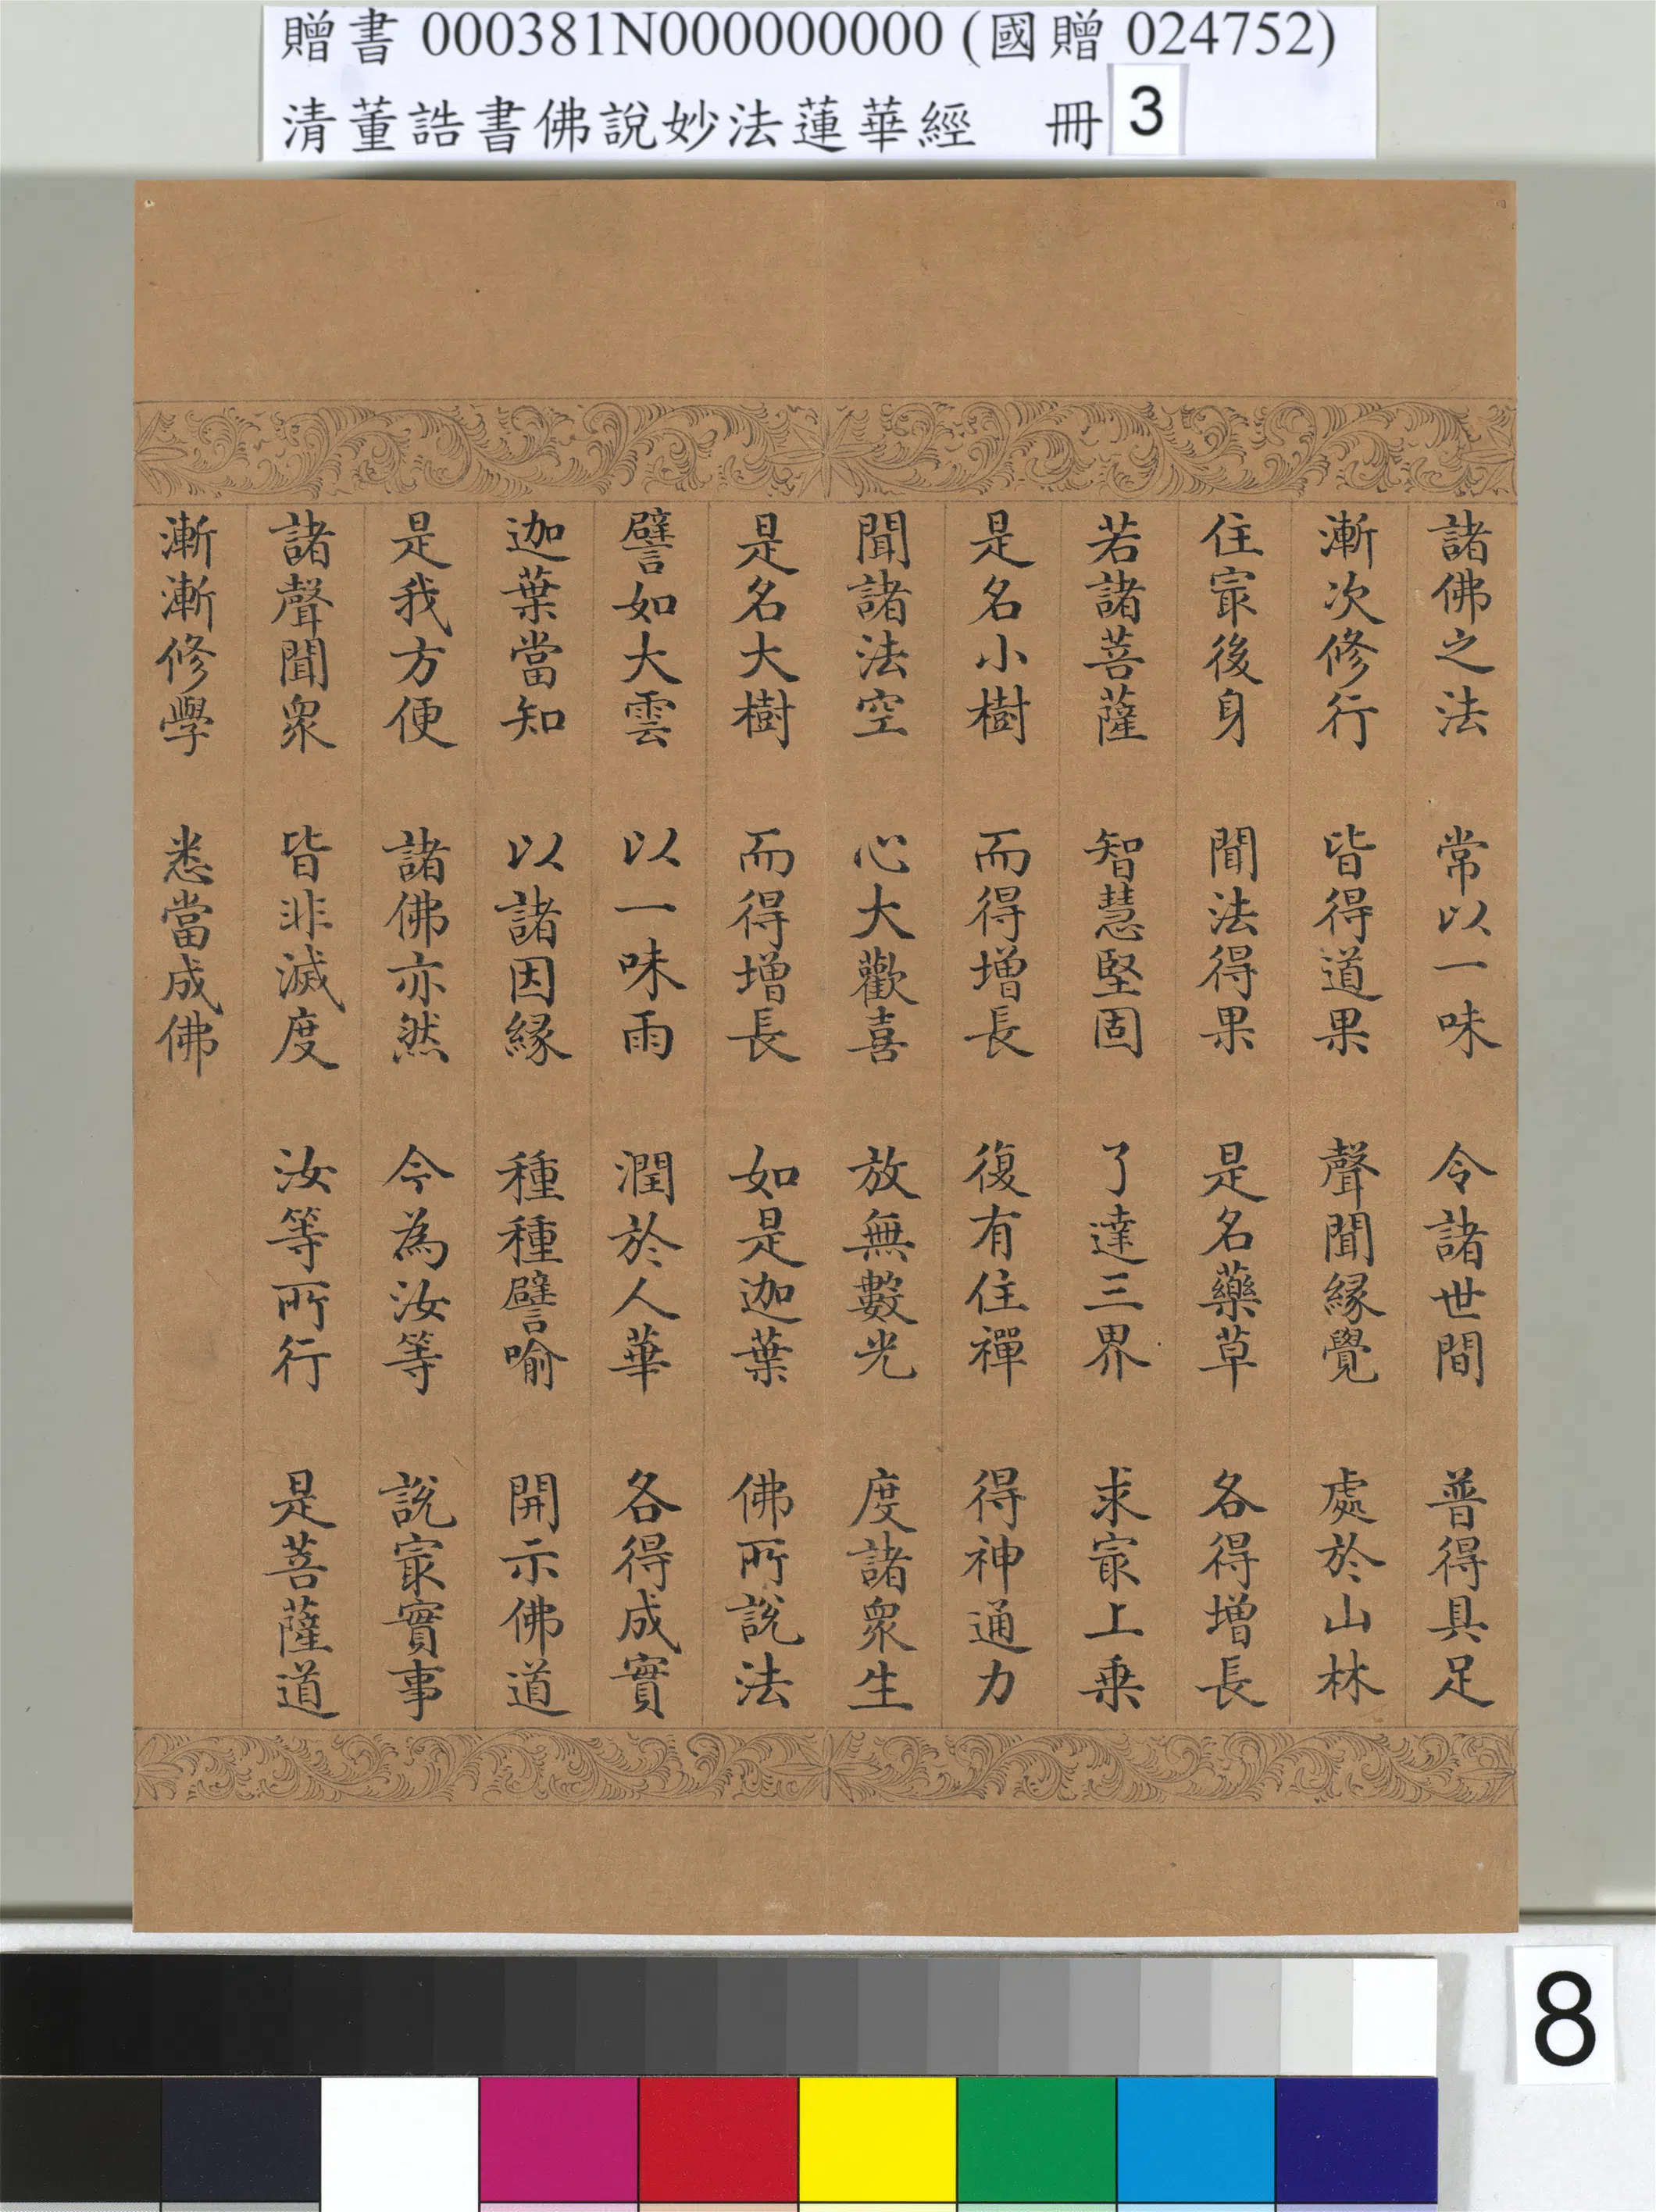 贈書 000381N000000000 (國贈 024752)
清董誥書佛說妙法蓮華經　冊 3
諸佛之法　常以一味　令諸世間　普得具足
漸次修行　皆得道果　聲聞緣覺　處於山林
住冣後身　聞法得果　是名藥草　各得增長
若諸菩薩　智慧堅固　了達三界　求冣上乗
是名小樹　而得增長　復有住禪　得神通力
聞諸法空　心大歡喜　放無數光　度諸眾生
是名大樹　而得增長　如是迦葉　佛所說法
譬如大雲　以一味雨　潤於人華　各得成實
迦葉當知　以諸因緣　種種譬喻　開示佛道
是我方便　諸佛亦然　今為汝等　說冣實事
諸聲聞眾　皆非滅度　汝等所行　是菩薩道
漸漸修學　悉當成佛
8